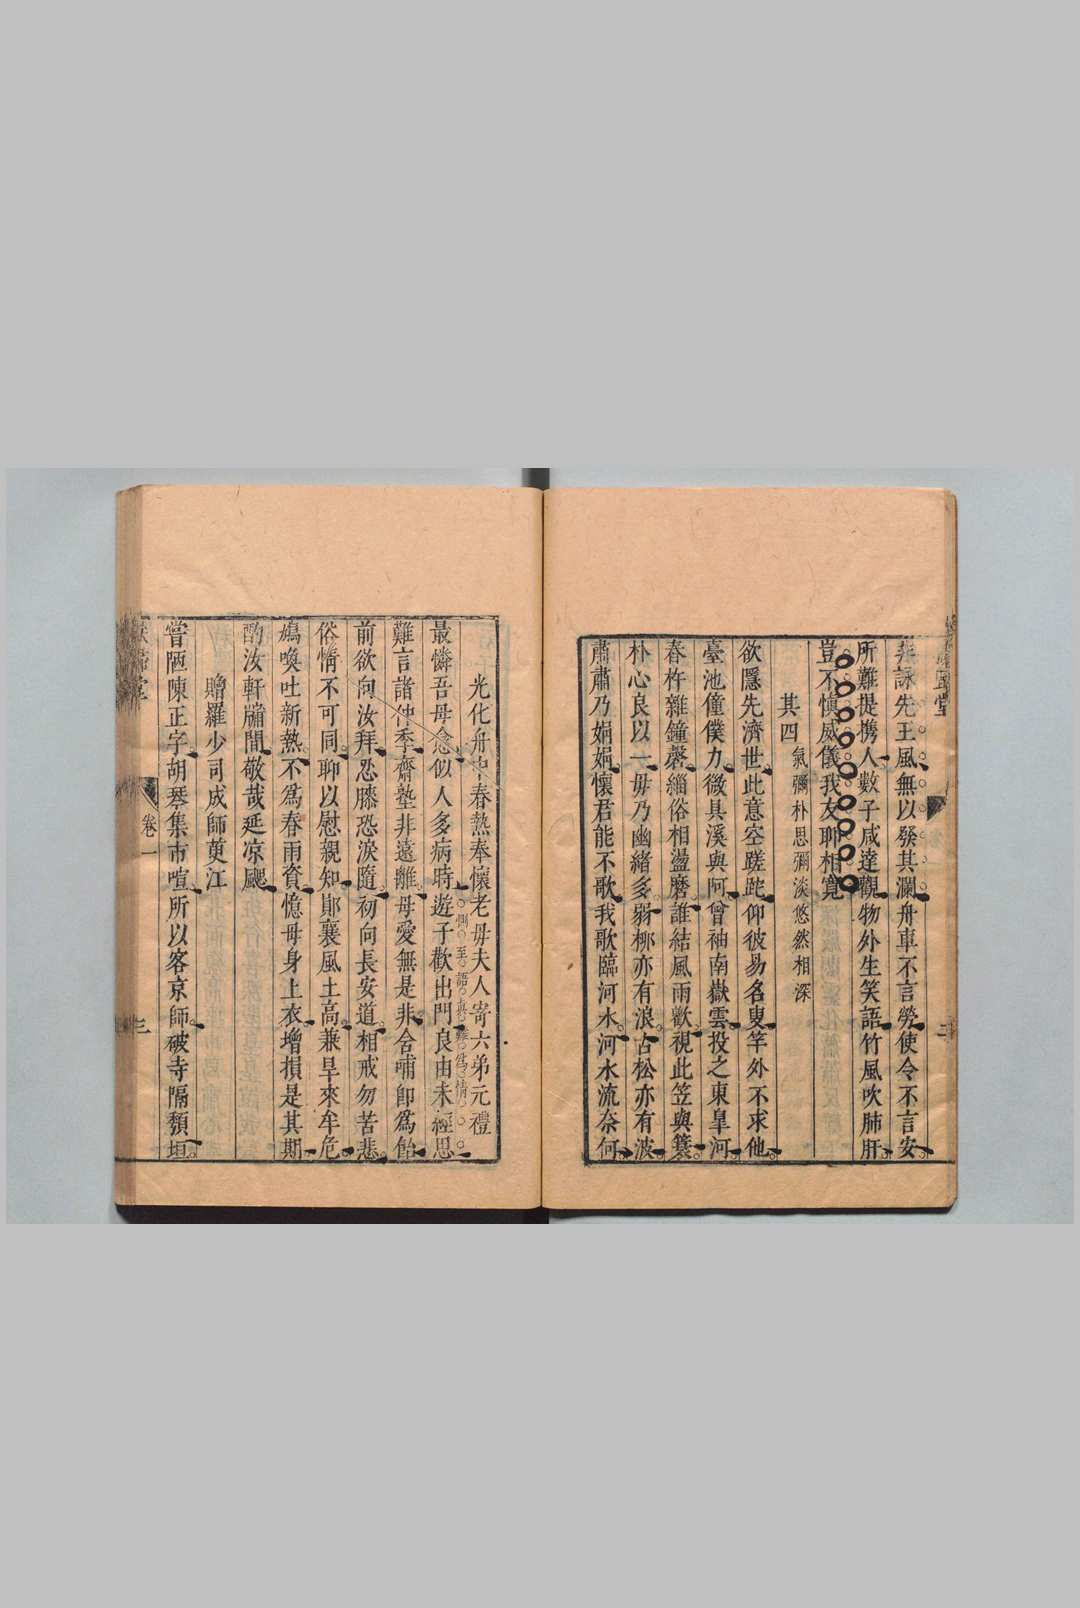 美詠先王風無以發其瀾舟車不言勞使令不言安
所難提携人數子咸達觀物外生笑語竹風吹肺肝
豈不慎威儀我友聊相寬
其四
氣彌朴思彌淡悠然相深
欲隱先濟世此意空蹉跎仰彼易名叟竿外不求他
臺池僮僕力微具溪與阿曾袖南嶽雲投之東皐河
春杵雜鐘磬緇俗相盪磨誰結風雨歡視此笠與簑
朴心良以一毋乃幽緒多弱柳亦有浪古松亦有波
肅肅乃娟娟懷君能不歌我歌臨河水河水流奈何
二
光化舟中春熱奉懷老母夫人寄六弟元禮
最憐吾母念似人多病時遊子歡出門良由未經思
側至語眞難爲情
難言諸仲季齋塾非遠離母愛無是非含哺即爲飴
前欲向汝拜忍膝恐淚隨初向長安道相戒勿苦悲
俗情不可同聊以慰親知鄖襄風土高兼旱來牟危
鳩喚吐新熱不爲春雨資憶母身上衣增損是其期
酌汝軒牖間敬哉延凉颸
贈羅少司成師萸江
嘗陋陳正字胡琴集市喧所以客京師破寺隔頹垣
卷一
三